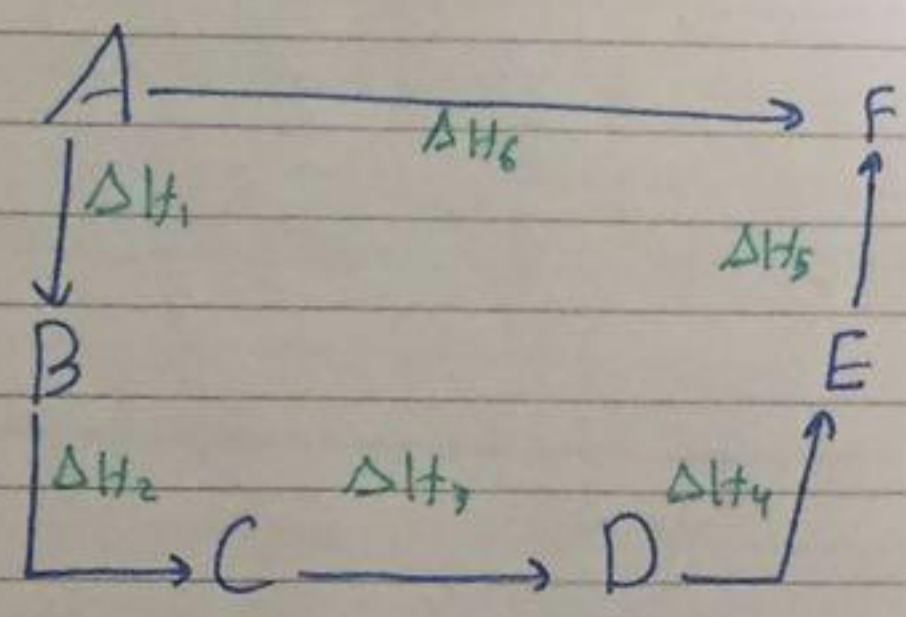 A F
ΔH₆
ΔH₁
ΔH₅
B E
ΔH₂ ΔH₃ ΔH₄
C D